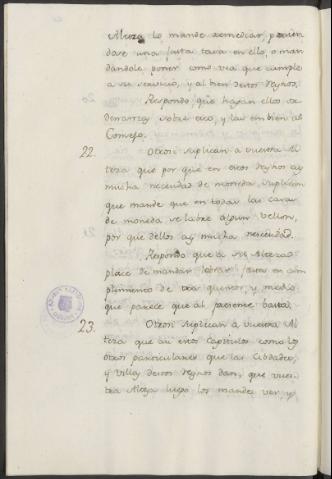 Alteza lo mande remediar, ponien
dose una justa tasa en ello, o man
dandole poner como vea que cumple
a su servicio, y al bien destos Reynos.
Respondo, que hayan ellos
sobre eso, y las embien al
Consejo.
22. Otrosi suplican a vuestra Al
teza que por que en estos Reynos ay
mucha necesidad de moneda, suplican
que mande que en todas las casas
de moneda se labre algun vellon,
por que dello ay mucha necesidad.
Respondo que a Su Alteza
place de mandar labrar hasta en cum
plimiento de dos quentos, y medio
que parece que al presente basta.
23. Otrosi suplican a vuestra Al
teza que asi estos Capitulos como los
otros particulares que las Cibdades,
y Villas destos Reynos dan, que vues
tra Alteza luego los mande ver, y